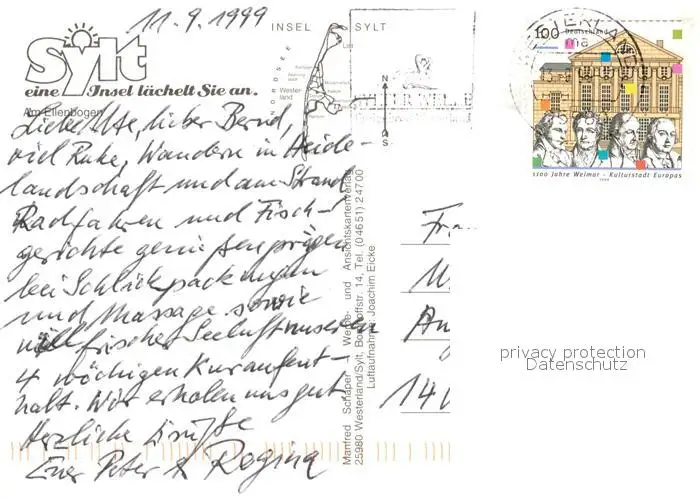 11.9.1999
INSEL SYLT
Sylt
eine Insel lächelt Sie an.
Am Ellenbogen
NORDSEE
List
Wester-
land
N
S
WESTERLAND
100 Deutschland
1100 Jahre Weimar - Kulturstadt Europas
1999
Liebe Ute, lieber Bernd,
viel Ruhe, Wandern in Heide-
landschaft und am Strand
Radfahren und Fisch-
gerichte genießen prägen
bei Schlickpackungen
und Massage sowie
viel frischer Seeluft unseren
4 wöchigen Kuraufent-
halt. Wir erholen uns gut
Herzliche Grüße
Euer Peter & Regina
Manfred Schaper Werbe- und Ansichtskartenverlag
25980 Westerland/Sylt, Bomhoffstr. 14, Tel. (04651) 24700
Luftaufnahme: Joachim Eicke
An
140
privacy protection
Datenschutz